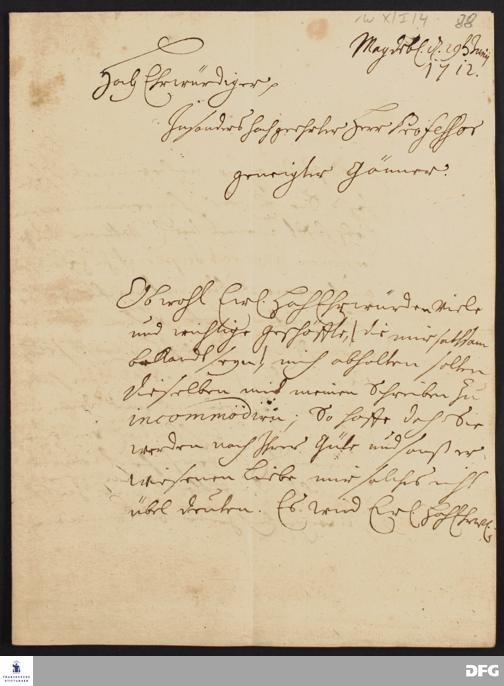 IV XI/I/4 88
Magdeb. d. 29 Junij
1712.
Hoch Ehrwürdiger,
Insonders hochgeehrter Herr Professor
geneigter Gönner.
Obwohl Ewl. HochEhrwürden viele
und wichtige Geschäffte, (die mir sattsam
bekandt seyn) mich abhalten solten
dieselben mit meinen Schreiben zu
incommodiren; So hoffe doch Sie
werden nach Ihrer Güte und sonst er
wiesenen Liebe mir solches nicht
übel deuten. Es wird Ewl. HochEhrw.
FRANCKESCHE
STIFTUNGEN
DFG